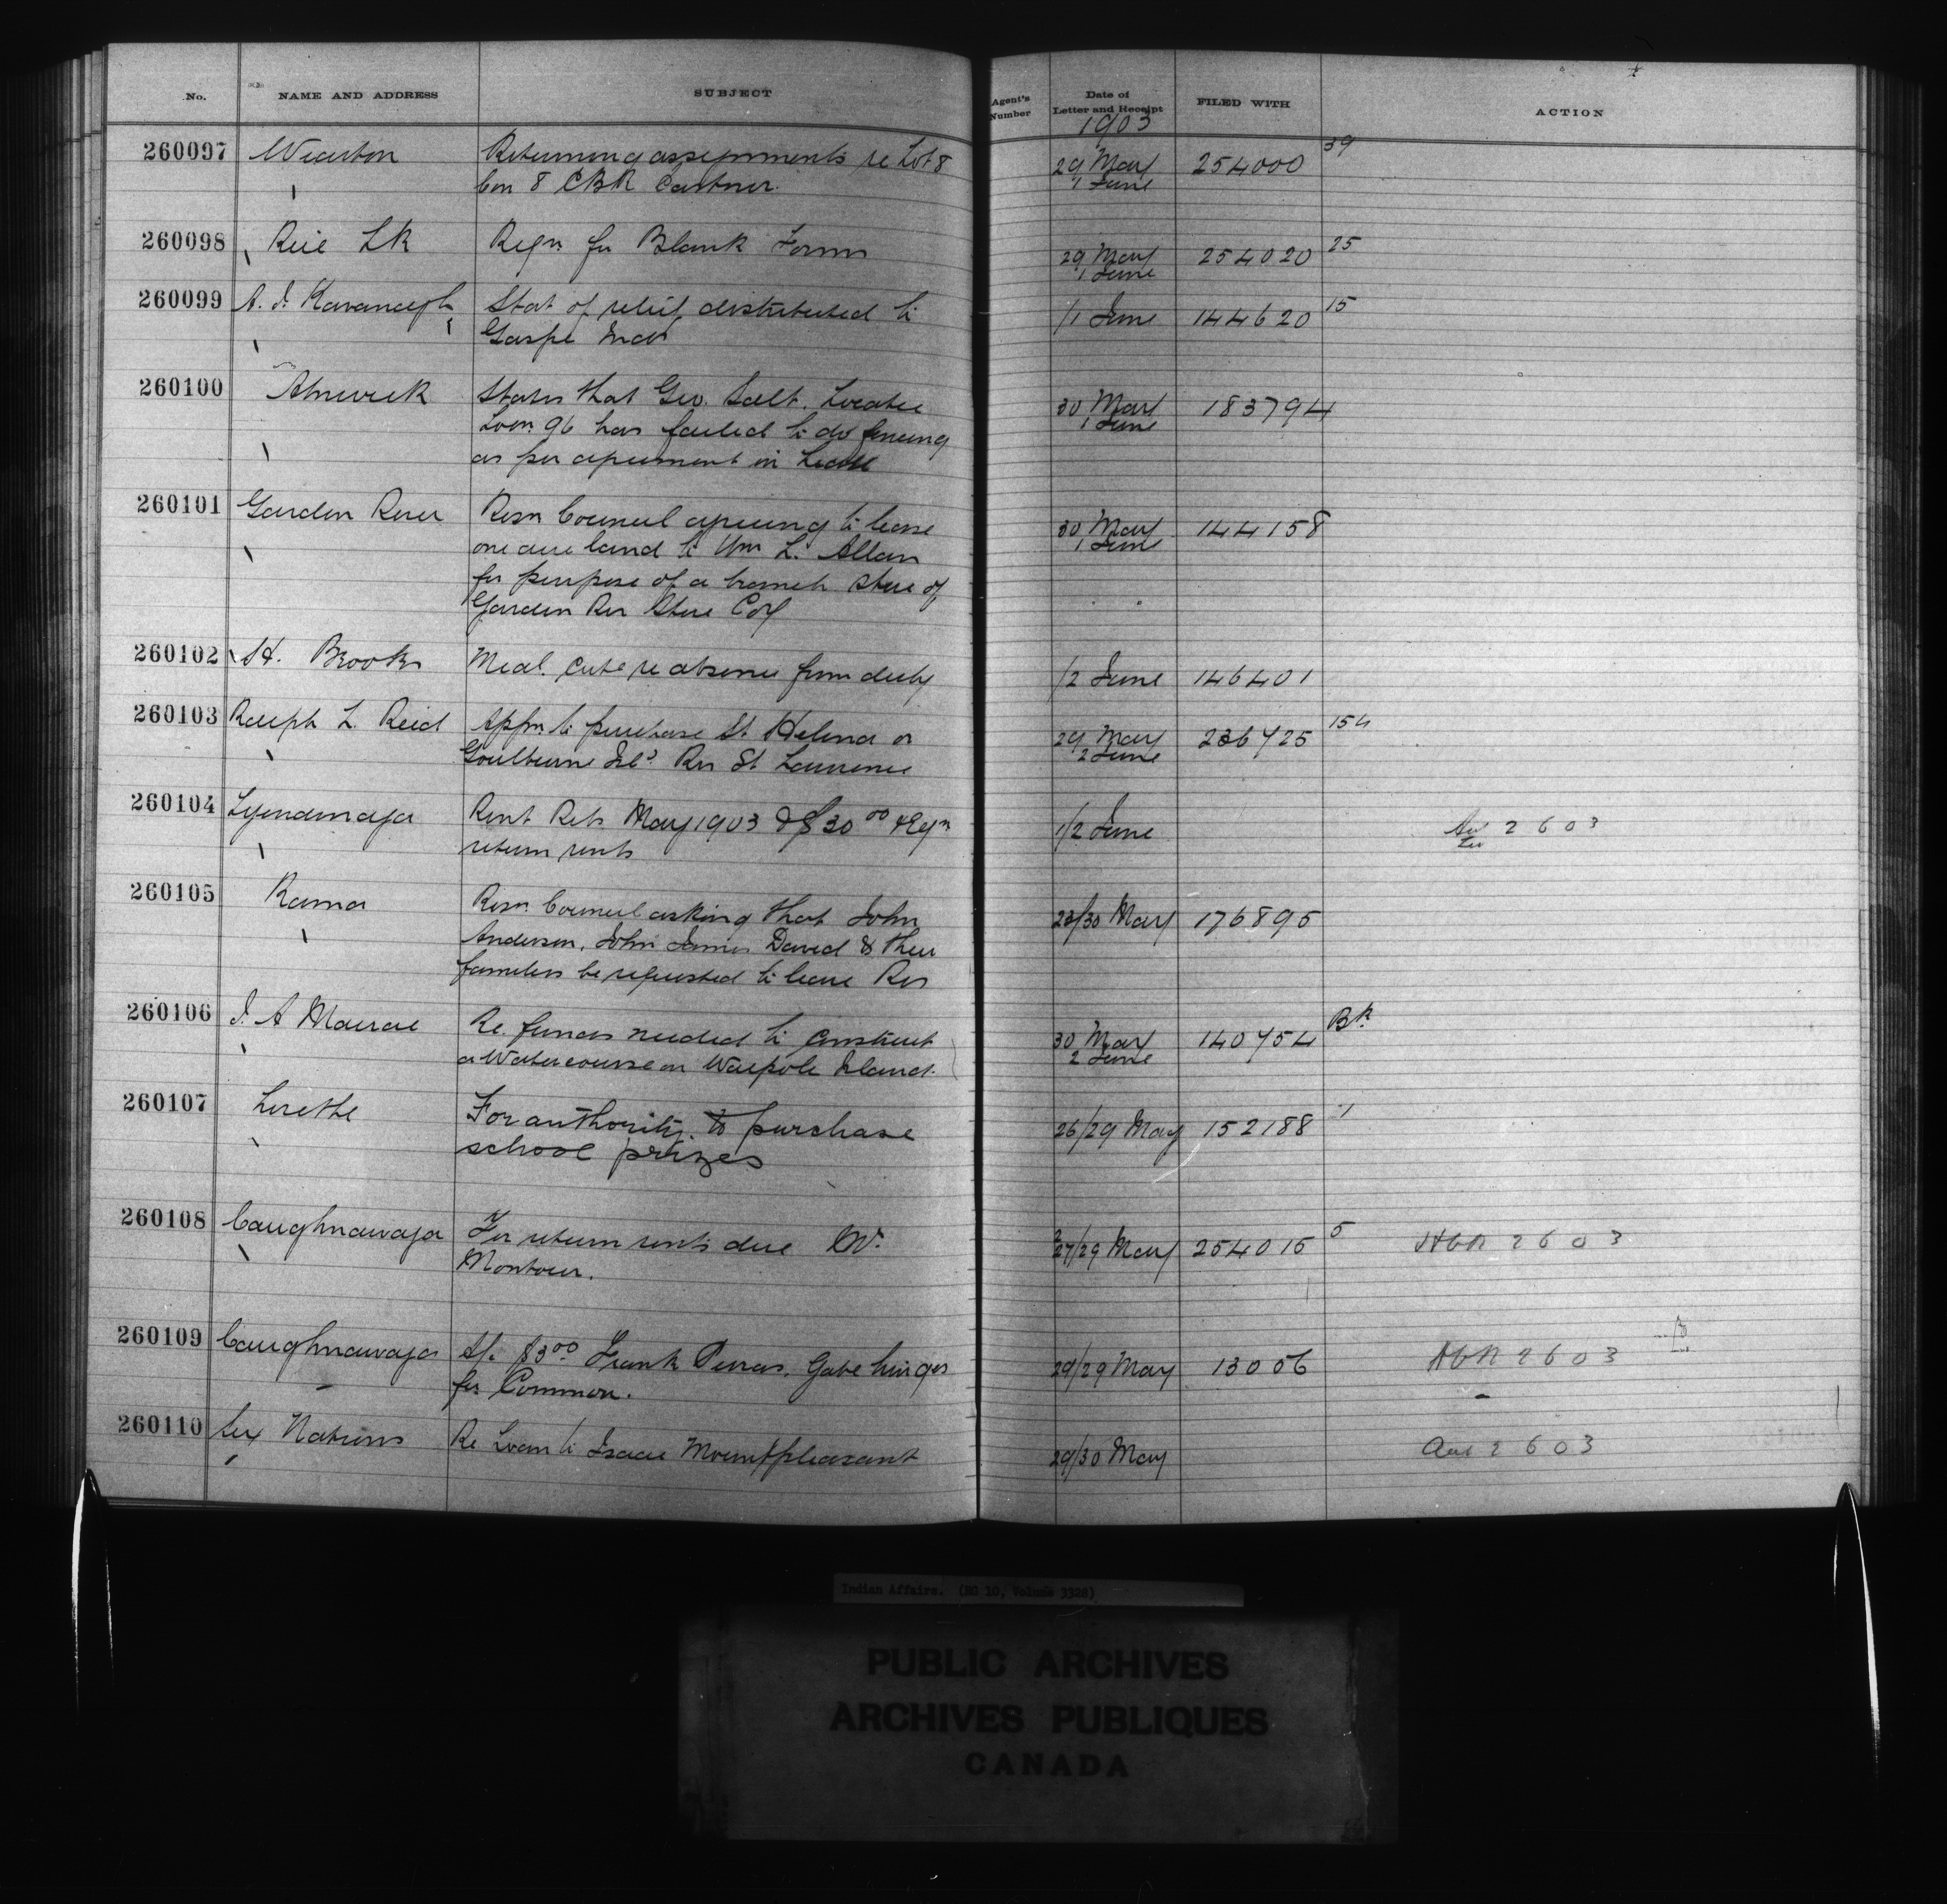 No. NAME AND ADDRESS SUBJECT Agent's Number Date of Letter and Receipt FILED WITH ACTION
1903
260097 Wiarton Returning assignments re Lot 8 29 May 254000 39
Con 8 CBR Eastnor. 1 June
260098 Rice Lk Reqn for Blank Forms 29 May 254020 25
1 June
260099 Kavanagh Stat of relief distributed to /1 June 144620 15
Gaspe Inds
260100 Alnwick States that Geo. Salt, Locatee 30 May 183794
Loon 96 has failed to do fencing 1 June
as per agreement in Lease
260101 Garden River Resn Council agreeing to lease 30 May 144158
one acre land to Wm L. Allan 1 June
for purpose of a branch store of
Garden Riv Store Coy
260102 H. Brooks Medl. Certe re absence from duty /2 June 146401
260103 Ralph L. Reid Appn to purchase St Helena or 29 May 236725 154
Goulburne Isls Riv St Lawrence 2 June
260104 Tyendinaga Rent Rets May 1903 & $30 00 & Reqn 1/2 June 2 6 03
return rents
260105 Rama Resn Council asking that John 23/30 May 176895
Anderson, John James David & their
families be requested to leave Res
260106 Macrae Re. funds needed to construct 30 May 140754 Bk
a Watercourse on Walpole Island. 2 June
260107 Lorette For authority to purchase 26/29 May 152188 1
school prizes
260108 Caughnawaga For return rents due W. 27/29 May 254015 5 2 6 03
Montour.
260109 Caughnawaga A/c $3 00 Frank Perras, Gate hinges 29/29 May 13006 2 6 03
for Common.
260110 Six Nations Re Loan to Isaac Mountpleasant 29/30 May 2 6 03
Indian Affairs. (RG 10, Volume 3320)
PUBLIC ARCHIVES
ARCHIVES PUBLIQUES
CANADA